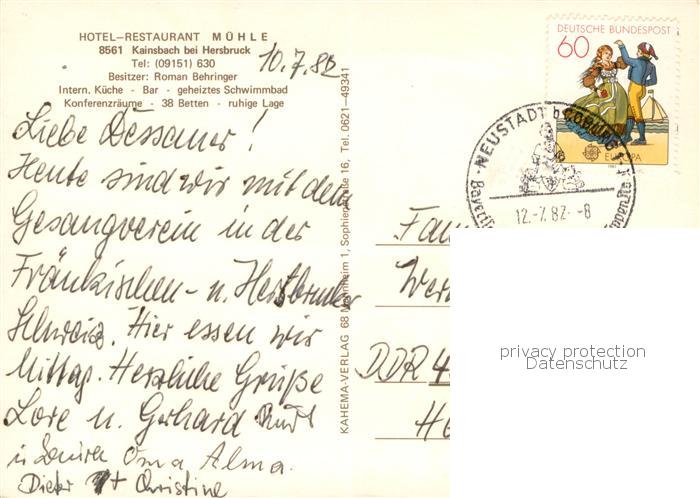 HOTEL–RESTAURANT MÜHLE
8561 Kainsbach bei Hersbruck
Tel: (09151) 630
Besitzer: Roman Behringer
Intern. Küche - Bar - geheiztes Schwimmbad
Konferenzräume - 38 Betten - ruhige Lage
10.7.82
Liebe Dessauer!
Heute sind wir mit dem
Gesangverein in der
Fränkischen- u. Hersbrucker
Schweiz. Hier essen wir
Mittag. Herzliche Grüße
Lore u. Gerhard
Oma Alma.
Dieter + Christine
KAHEMA-VERLAG 68 Mannheim 1, Sophienstraße 16, Tel. 0621-49341
DEUTSCHE BUNDESPOST
60
EUROPA
1981
NEUSTADT b COBURG
12.-7.82.-8
Fam
Wer
DDR 4
He
privacy protection
Datenschutz